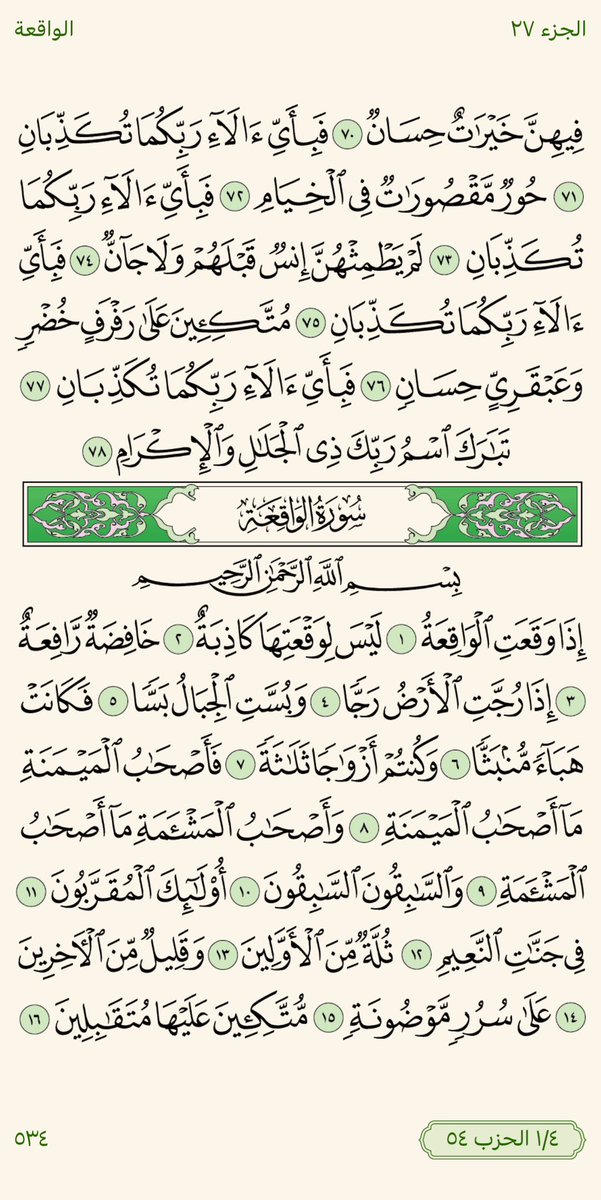 الجزء ٢٧ الواقعة
فِيهِنَّ خَيْرَٰتٌ حِسَانٌ ٧٠ فَبِأَيِّ ءَالَآءِ رَبِّكُمَا تُكَذِّبَانِ
٧١ حُورٌ مَّقْصُورَٰتٌ فِى ٱلْخِيَامِ ٧٢ فَبِأَيِّ ءَالَآءِ رَبِّكُمَا
تُكَذِّبَانِ ٧٣ لَمْ يَطْمِثْهُنَّ إِنسٌ قَبْلَهُمْ وَلَا جَآنٌّ ٧٤ فَبِأَيِّ
ءَالَآءِ رَبِّكُمَا تُكَذِّبَانِ ٧٥ مُتَّكِـِٔينَ عَلَىٰ رَفْرَفٍ خُضْرٍ
وَعَبْقَرِيٍّ حِسَانٍ ٧٦ فَبِأَيِّ ءَالَآءِ رَبِّكُمَا تُكَذِّبَانِ ٧٧
تَبَٰرَكَ ٱسْمُ رَبِّكَ ذِى ٱلْجَلَٰلِ وَٱلْإِكْرَامِ ٧٨
سُورَةُ الوَاقِعَةِ
بِسْمِ ٱللَّهِ ٱلرَّحْمَٰنِ ٱلرَّحِيمِ
إِذَا وَقَعَتِ ٱلْوَاقِعَةُ ١ لَيْسَ لِوَقْعَتِهَا كَاذِبَةٌ ٢ خَافِضَةٌ رَّافِعَةٌ
٣ إِذَا رُجَّتِ ٱلْأَرْضُ رَجًّا ٤ وَبُسَّتِ ٱلْجِبَالُ بَسًّا ٥ فَكَانَتْ
هَبَآءً مُّنۢبَثًّا ٦ وَكُنتُمْ أَزْوَٰجًا ثَلَٰثَةً ٧ فَأَصْحَٰبُ ٱلْمَيْمَنَةِ
مَآ أَصْحَٰبُ ٱلْمَيْمَنَةِ ٨ وَأَصْحَٰبُ ٱلْمَشْـَٔمَةِ مَآ أَصْحَٰبُ
ٱلْمَشْـَٔمَةِ ٩ وَٱلسَّٰبِقُونَ ٱلسَّٰبِقُونَ ١٠ أُو۟لَٰٓئِكَ ٱلْمُقَرَّبُونَ ١١
فِى جَنَّٰتِ ٱلنَّعِيمِ ١٢ ثُلَّةٌ مِّنَ ٱلْأَوَّلِينَ ١٣ وَقَلِيلٌ مِّنَ ٱلْـَٔاخِرِينَ
١٤ عَلَىٰ سُرُرٍ مَّوْضُونَةٍ ١٥ مُّتَّكِـِٔينَ عَلَيْهَا مُتَقَٰبِلِينَ ١٦
١/٤ الحزب ٥٤ ٥٣٤